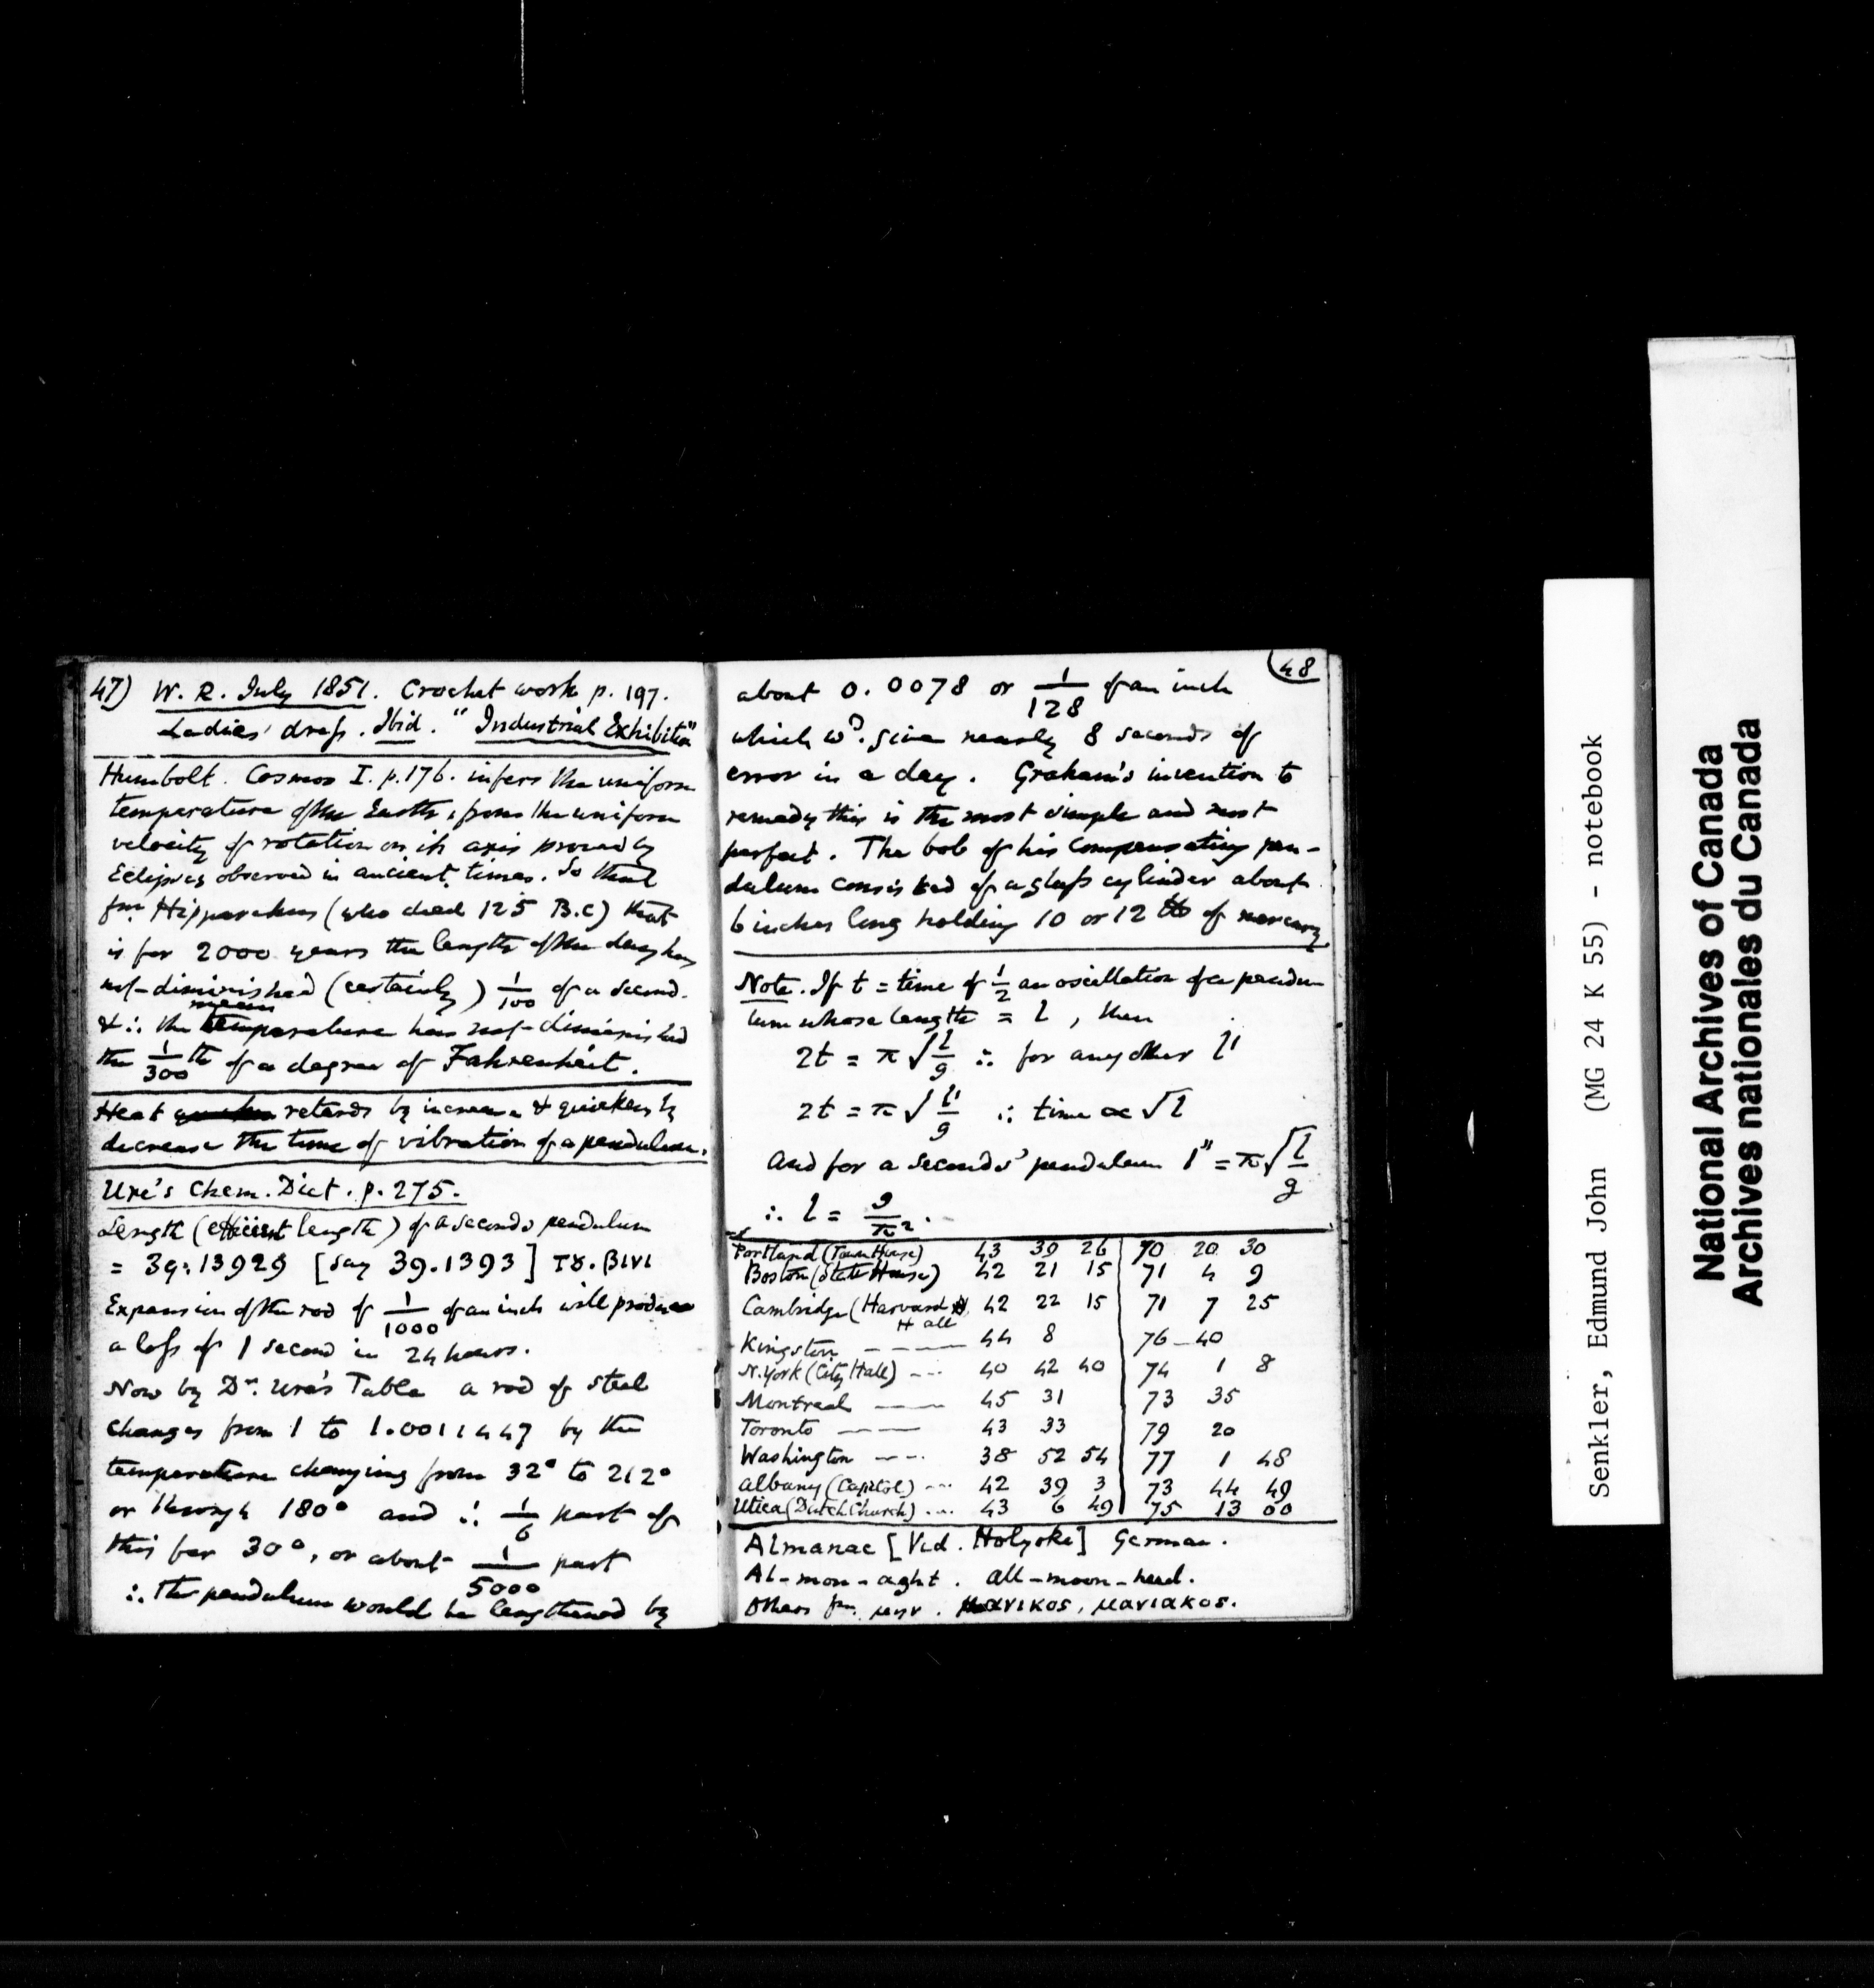 47) W. R. July 1851. Crochet work p. 197.
Ladies' dress. Ibid. "Industrial Exhibition"
Humbolt. Cosmos I. p. 176. infers the uniform
temperature of the Earth, from the uniform
velocity of rotation on its axis proved by
Eclipses observed in ancient times. So that
fm Hipparchus (who died 125 B.C) that
is for 2000 years the length of the day has
not diminished (certainly) 1/100 of a second.
& ∴ the mean temperature has not diminished
the 1/300th of a degree of Fahrenheit.
Heat retards by increase & quickens by
decrease the time of vibration of a pendulum.
Ure's Chem. Dict. p. 275.
Length (efficient length) of a seconds pendulum
= 39.13929 [say 39.1393]
Expansion of the rod of 1/1000 of an inch will produce
a loss of 1 second in 24 hours.
Now by Dr. Ure's Table a rod of steel
changes from 1 to 1.0011447 by the
temperature changing from 32° to 212°
or through 180° and ∴ 1/6 part of
this for 30°, or about 1/5000 part
∴ the pendulum would be lengthened by
48
about 0.0078 or 1/128 of an inch
which wd. give nearly 8 seconds of
error in a day. Graham's invention to
remedy this is the most simple and most
perfect. The bob of his compensating pen-
dulum consisted of a glass cylinder about
6 inches long holding 10 or 12 lb of mercury
Note. If t = time of 1/2 an oscillation of a pendu-
lum whose length = l, then
2t = π √l/g ∴ for any other l'
2t = π √l'/g ∴ time ∝ √l
And for a seconds' pendulum 1" = π√l/g
∴ l = g/π².
Portland (Town House) 43 39 26 | 70 20 30
Boston (State House) 42 21 15 | 71 4 9
Cambridge (Harvard Hall 42 22 15 | 71 7 25
Kingston ---- 44 8 | 76 - 40
N. York (City Hall) --- 40 42 40 | 74 1 8
Montreal --- 45 31 | 73 35
Toronto --- 43 33 | 79 20
Washington --- 38 52 54 | 77 1 48
Albany (Capitol) --- 42 39 3 | 73 44 49
Utica (Dutch Church) --- 43 6 49 | 75 13 00
Almanac [Vid. Holyoke] German.
Al-mon-aght. all-moon-heed.
Others fm μην. μανικος, μανιακος.
Senkler, Edmund John (MG 24 K 55) - notebook
National Archives of Canada
Archives nationales du Canada